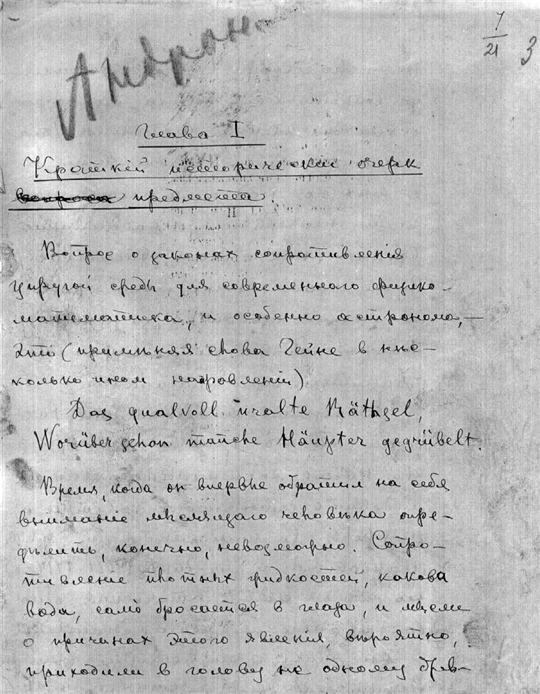 Андрон
7/21 3
Глава I
Краткий исторический очерк
вопроса предмета.
Вопрос о законах сопротивления
упругой среды для современного физико-
математика, и особенно астронома, —
это (примѣняя слова Гейне в нѣс-
колько ином направленіи)
Das qualvoll uralte Räthsel,
Worüber schon manche Häupter gegrübelt.
Время, когда он впервые обратил на себя
вниманіе мыслящаго человѣка опре-
дѣлить, конечно, невозможно. Сопро-
тивленіе плотных жидкостей, какова
вода, само бросается в глаза, и мысли
о причинах этого явленія, вѣроятно,
приходили в голову не одному древ-